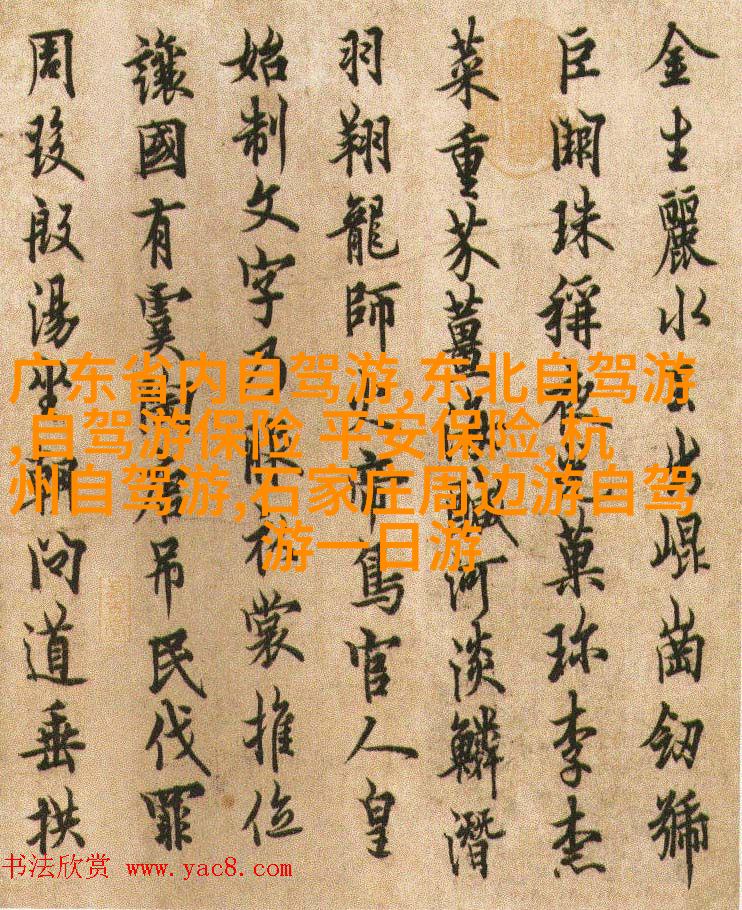 金生麗水玉出崐崗劒號
巨闕珠稱夜光菓珎李柰
菜重芥薑海鹹河淡鱗潛
羽翔龍師火帝鳥官人皇
始制文字乃服衣裳推位
讓國有虞陶唐吊民伐罪
周發殷湯坐朝問道垂拱
广东省内自驾游,东北自驾游
,自驾游保险 平安保险,杭
州自驾游,石家庄周边游自驾
游一日游
书法欣赏 www.yac8.com